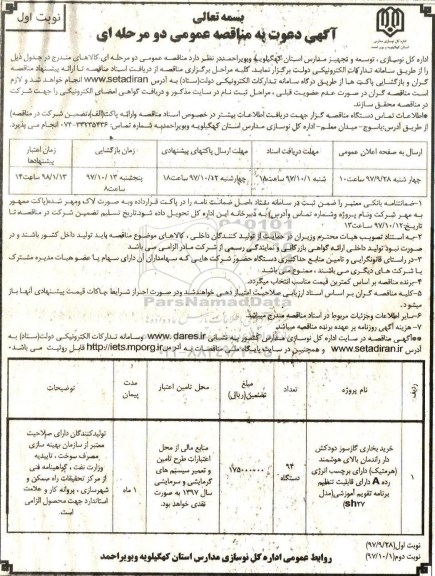 نوبت اول
بسمه تعالی
آگهی دعوت به مناقصه عمومی دو مرحله ای
اداره کل نوسازی، توسعه و تجهیز مدارس استان کهگیلویه وبویراحمد در نظر دارد مناقصه عمومی دو مرحله ای کالاهای مندرج در جدول ذیل
را از طریق سامانه تدارکات الکترونیکی دولت برگزار نماید. کلیه مراحل برگزاری مناقصه از دریافت اسناد مناقصه تا ارائه پیشنهاد مناقصه
گران و بازگشایی پاکت ها از طریق درگاه سامانه تدارکات الکترونیکی دولت(ستاد) به آدرس www.setadiran انجام خواهد شد و لازم
است مناقصه گران در صورت عدم عضویت قبلی، مراحل ثبت نام در سایت مذکور و دریافت گواهی امضای الکترونیکی را جهت شرکت
در مناقصه محقق سازند.
*اطلاعات تماس دستگاه مناقصه گزار جهت دریافت اطلاعات بیشتر در خصوص اسناد مناقصه وارائه پاکت(الف)تضمین شرکت در مناقصه)
از طریق آدرس:یاسوج- میدان معلم- اداره کل نوسازی مدارس استان کهگیلویه وبویراحمد به شماره تماس: ۳۳۲۳۵۴۳۶-۰۷۴ انجام می پذیرد.
ارسال به صفحه اعلان عمومی
مهلت دریافت اسناد
مهلت ارسال پاکتهای پیشنهادی
زمان بازگشایی
زمان اعتبار پیشنهادها
چهار شنبه ۹۷/۹/۲۸ ساعت۱۰
شنبه ۹۷/۱۰/۱ ساعت۱۸
چهارشنبه ۹۷/۱۰/۱۲ ساعت۱۸
پنجشنبه ۹۷/۱۰/۱۳ ساعت۸
۹۸/۱/۱۳ ساعت۱۴
۱-ضمانتنامه بانکی معتبر را ضمن ثبت در سامانه ستاد باصل ضمانت نامه را در پاکت قرارداده وبه صورت لاک ومهر شده(پاکت ممهور
به مهر شرکت ونام پروژه وشماره تماس وآدرس) به دبیرخانه این اداره کل تحویل داده شود.تاریخ تسلیم تضمین شرکت در مناقصه تا
تاریخ۹۷/۱۰/۱۲ ساعت۱۳
۲-به استناد تصویب هیات محترم وزیران در حمایت از تولید کنندگان داخلی، کالاهای موضوع مناقصه باید تولید داخل کشور باشند و در
صورت نبود تولید داخلی ارائه گواهی بازرگانی و نمایندگی رسمی از شرکت مادر الزامی می باشد
۳-در راستای قانونگرایی و تامین منابع حداکثری دستگاه حضور شرکت هایی که سهامداران آن دارای سهام یا عضو هیات مدیره مشترک
با شرکت های دیگری می باشند، ممنوع می باشد
۴-برنده مناقصه بر اساس کمترین قیمت مناسب انتخاب میگردد.
۵-کلیه مناقصه گران بر اساس اسناد ارزیابی صلاحیت امتیاز دهی خواهند شد ودر صورت احراز شرایط پاکات قیمت پیشنهادی آنها باز
میشود.
۶-سایر اطلاعات وجزئیات مربوط در اسناد مناقصه مندرج میباشد
۷- هزینه آگهی روزنامه بر عهده برنده مناقصه میباشد.
**آگهی مناقصه در سایت اداره کل نوسازی مدارس کشور به نشانی www. dares.ir وسامانه تدارکات الکترونیکی دولت(ستاد) به
آدرس www.setadiran.ir و همچنین در سایت پایگاه ملی مناقصات به آدرس http://iets.mporg.ir قابل رویت می باشد.
ردیف
نام پروژه
تعداد
مبلغ تضمین(ریال)
محل تامین اعتبار
مدت پیمان
توضیحات
۱
خرید بخاری گازسوز دودکش
(هرمتیک) دارای برچسب انرژی
دار راندمان بالای هوشمند
رده A دارای قابلیت تنظیم
برنامه تقویم آموزشی(مدل
sh۲۷)
۹۴ دستگاه
۱۷۵۰۰۰۰۰۰
منابع مالی از محل
اعتبارات طرح تامین
و تعمیر سیستم های
گرمایشی و سرمایشی
سال ۱۳۹۷ به صورت
نقدی خواهد بود.
۱ ماه
تولیدکنندگان دارای صلاحیت
معتبر از سازمان بهینه سازی
مصرف سوخت، تاییدیه
وزارت نفت، گواهینامه فنی
از مرکز تحقیقات راه مسکن و
شهرسازی، پروانه کار و علامت
استاندارد جهت محصول الزامی
است.
نوبت اول(۹۷/۹/۲۸)
نوبت دوم(۹۷/۱۰/۱)
روابط عمومی اداره کل نوسازی مدارس استان کهگیلویه وبویراحمد